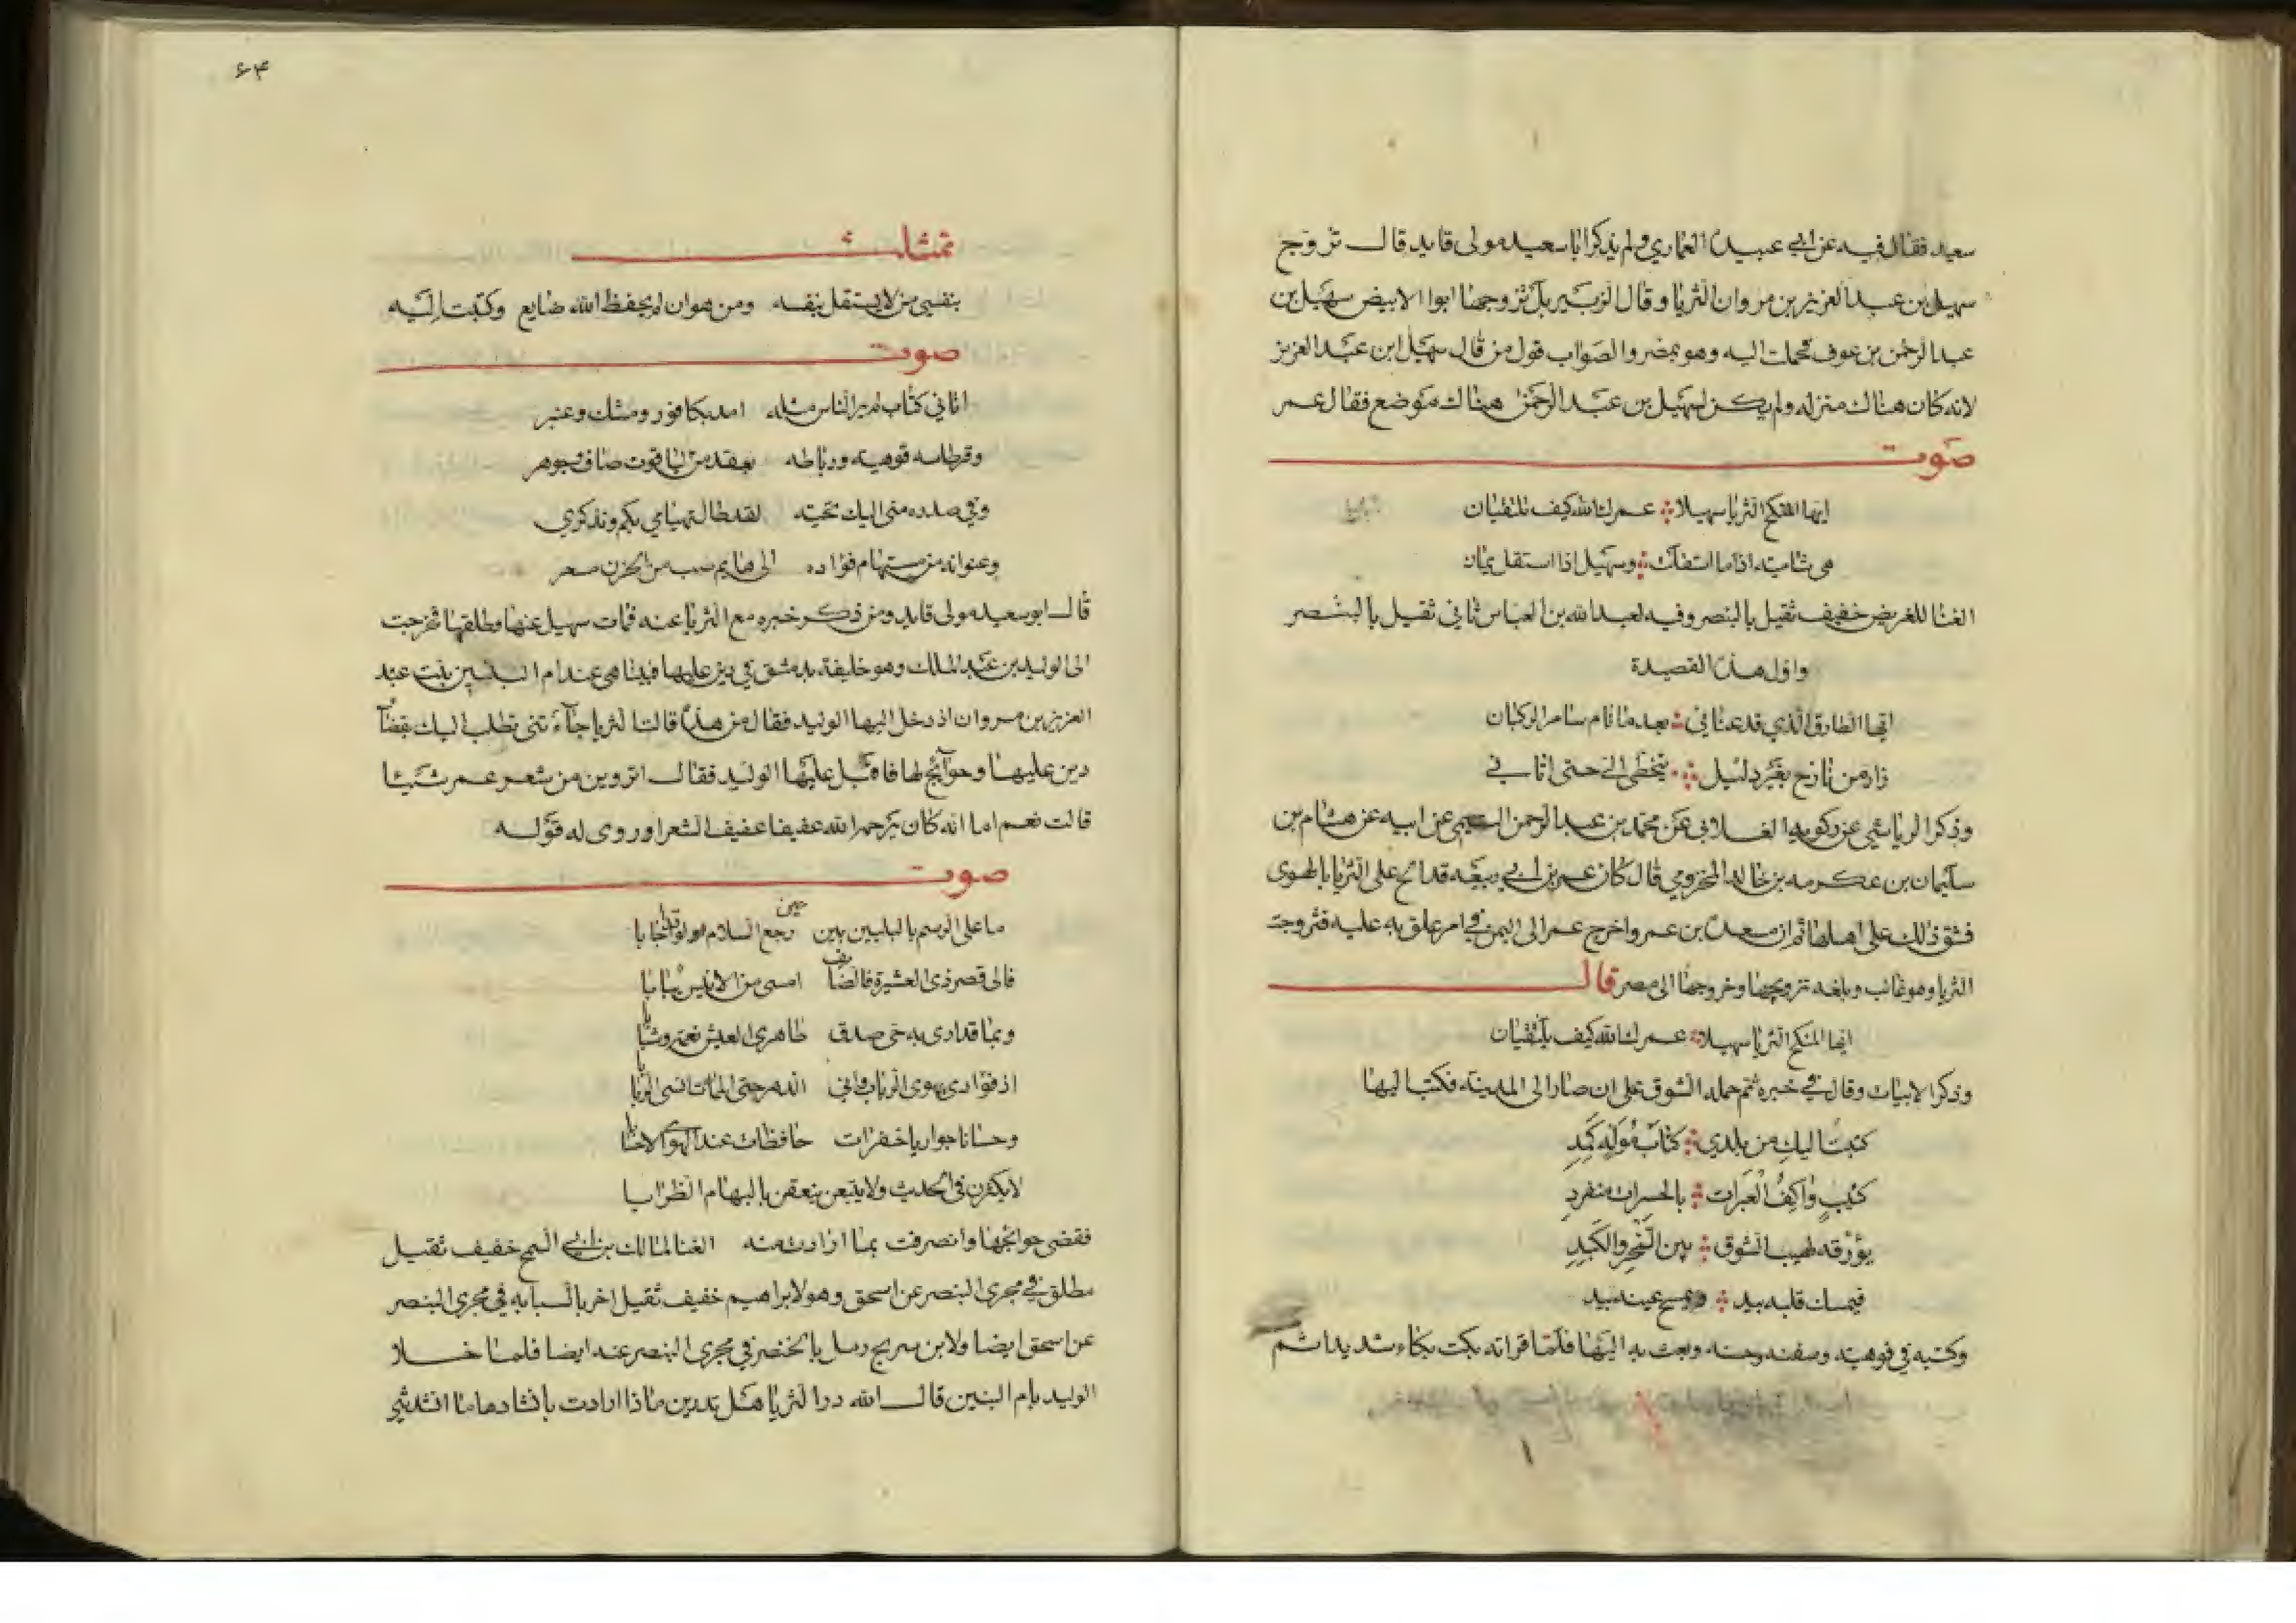 سعيد فقال فيه عن ابي عبيدة العماري ولم يذكر ابا سعيد مولى قايد قال تزوج
سهيل بن عبد العزيز بن مروان الثريا وقال الزبير بل تزوجها ابوا الابيض سهيل بن
عبد الرحمن بن عوف فحملت اليه وهو بمصر والصواب قول من قال سهيل ابن عبد العزيز
لانه كان هناك منزله ولم يكن لسهيل بن عبد الرحمن هناك موضع فقال عمر
صوت
ايها المنكح الثريا سهيلا عمرك الله كيف تلتقيان
هي شامية اذا ما استقلت وسهيل اذا استقل يمان
الغنا للغريض خفيف ثقيل بالبنصر وفيه لعبد الله بن العباس ثاني ثقيل بالبنصر
واول هذه القصيدة
ايها الطارق الذي قد عناني بعد ما نام سامر الركبان
زار من نازح بغير دليل يتخطى الي حتى اتاني
وذكر الرياشي عن زكويه الغلابي عن محمد بن عبد الرحمن التيمي عن ابيه عن هشام بن
سليمان بن عكرمه بن خالد المخزومي قال كان عمر بن ابي ربيعه قد الح على الثريا بالهوى
فشق ذلك على اهلها ثم ان مسعدة بن عمر واخرج عمر الى اليمن في امر علق به عليه فتزوجت
الثريا وهو غائب وبلغه تزويجها وخروجها الى مصر قال
ايها المنكح الثريا سهيلا عمرك الله كيف يلتقيان
وذكر الابيات وقال في خبره ثم حمله الشوق على ان صار الى المدينة فكتب اليها
كتبت اليك من بلدي كتاب موله كمد
كئيب واكف العبرات بالحسرات منفرد
يؤرقه لهيب الشوق بين السحر والكبد
فيمسك قلبه بيد ويمسح عينه بيد
وكتبه في قوهية وحسنه وبعث به اليها فلما قراته بكت بكاء شديدا ثم
٦٤
تمثلت
بنفسي من لا يستقل بنفسه ومن هو ان لم يحفظ الله ضايع وكتبت اليه
صوت
اتاني كتاب لم ير الناس مثله امد بكافور ومسك وعنبر
وقرطاسه قوهية ورباطه بعقد من الياقوت صاف وجوهر
وفي صدره مني اليك تحية لقد طال تهيامي بكم وتذكري
وعنوانه من مستهام فؤاده الى هايم صب من الحزن مسعر
قال ابو سعيد مولى قايد ومن ذكر خبره مع الثريا عنه فمات سهيل عنها وطلقها فخرجت
الى الوليد بن عبد الملك وهو خليفة بدمشق في دين عليها فبينا هي عند ام البنين بنت عبد
العزيز بن مروان اذ دخل اليها الوليد فقال من هذه قالت الثريا جآءتني تطلب اليك بقضآ
دين عليها وحوآئج لها فاقبل عليها الوليد فقال اتروين من شعر عمر شيئا
قالت نعم اما انه كان يرحمه الله عفيفا عفيف الشعر اوروى له قوله
صوت
ما على الرسم بالبليين بين رجع السلام او لو اجابا
فالى قصر ذي العشيرة فالضا امسى من الانيس يبابا
وبما قد ارى به حي صدق ظاهري العيش نعمة وشبابا
اذ فؤادي يهوى الرباب واني الدهر حتى الممات انسى الربابا
وحسانا جواريا خفرات حافظات عند الهوى الاحسابا
لا يكثرن في الحديث ولا يتبعن ينعقن بالبهام الظرابا
فقضى حوائجها وانصرفت بما ارادت منه الغنا لمالك بن ابي السمح خفيف ثقيل
مطلق في مجرى البنصر عن اسحق وهو لابراهيم خفيف ثقيل اخر بالسبابه في مجرى البنصر
عن اسحق ايضا ولابن سريج رمل بالخنصر في مجرى البنصر عنه ايضا فلما خلا
الوليد بام البنين قال الله در الثريا هل تدرين ماذا ارادت بانشادها ما انشدتني